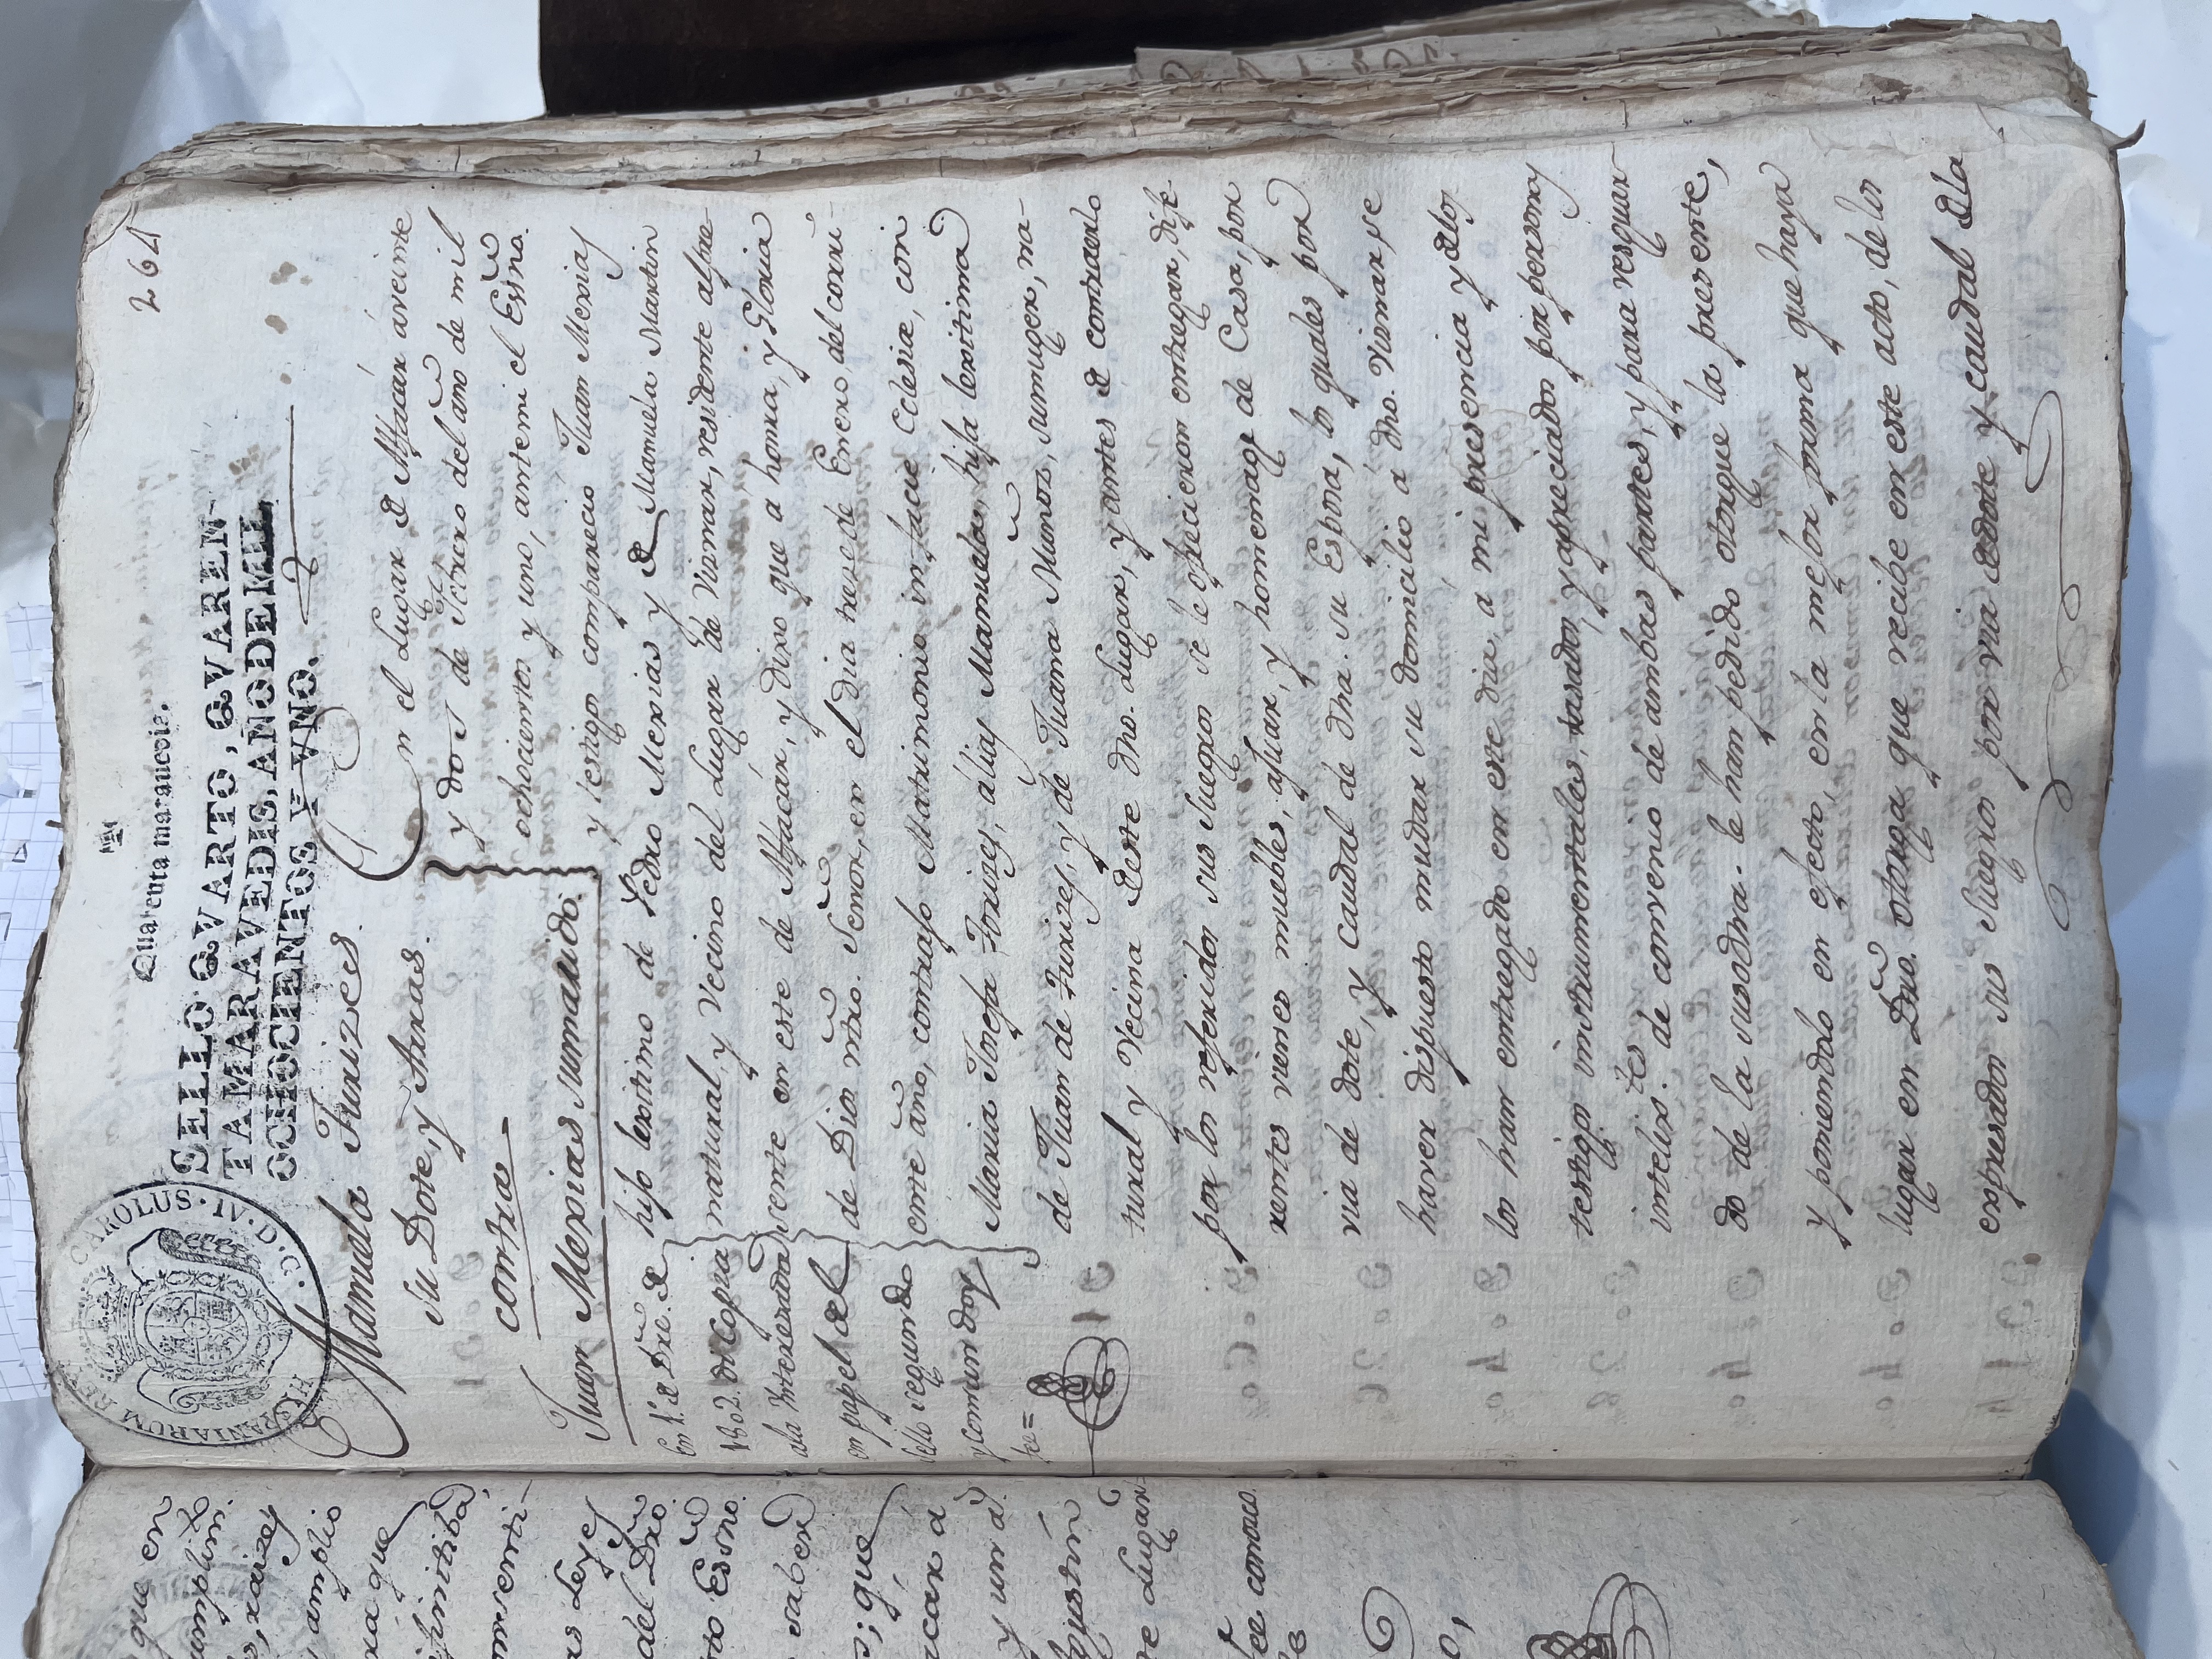 264
Quarenta maravedis.
SELLO QVARTO, QVAREN-
TA MARAVEDIS, AÑO DE MIL
OCHOCIENTOS Y VNO.
CAROLUS · IV · D · G · HISPANIARUM REX
Manuela Juarizes.
su Dote, y Arras.
contra
Juan Mexias su marido.
En el Lugar de Alfacár á veinte
y dos de Febrero del año de mil
ochocientos y uno, ante mi el Essno.
y testigos comparecio Juan Mexias
hijo lexitimo de Pedro Mexias y de Manuela Martin
natural, y Vecino del Lugar de Viznar, residente al pre-
sente en este de Alfácár, y dixo que a honra, y Gloria
de Dios ntro. Señor, en el dia trese de Enero, del corri-
ente año, contrajo Matrimonio in facie Eclesiæ, con
Maria Josefa Juarizes, álias Manuela, hija lexitima
de Juan de Juarizes, y de Juana Munoz, su muger, na-
tural y Vecina deste dho. Lugar, y antes de contraerlo
por los referidos sus Suegros se le ofrecieron entregar, dife-
rentes vienes muebles, ajuar, y homenage de Casa, por
via de dote, y Caudal de dha. su Esposa, los quales por
haver dispuesto mudar su domicilio a dho. Viznar, se
los han entregado en este dia, a mi presencia y delos
testigos instrumentales, tasados, y apreciados por personas
intelixtes. de convenio de ambas partes, y para resguar-
do de la susodha. le han pedido otorgue la presente,
y poniendolo en efecto, en la mejor forma que haya
lugar en Dro. otorga que recibe en este acto, de los
expresados sus Suegros por via de dote y caudal de la
En 1º. de Dre. de
1802. di Copia
ala Interesada
en papel del
sello segundo
y Comun doy
fee =
que en
cumplim.
raizes
amplio
que
consenti-
las Leyes
del Dro.
Essno.
saber
; que
car á
y un a
ve Lugar
fee conosco